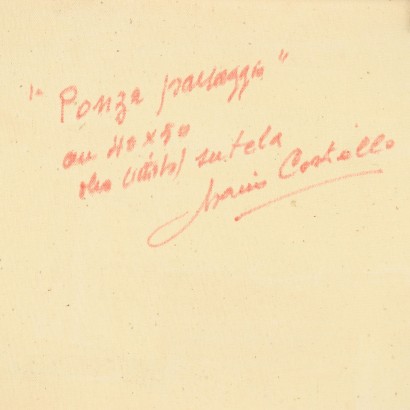 "Ponza paesaggio"
cm 40x50
olio su tela
Mario Costiello